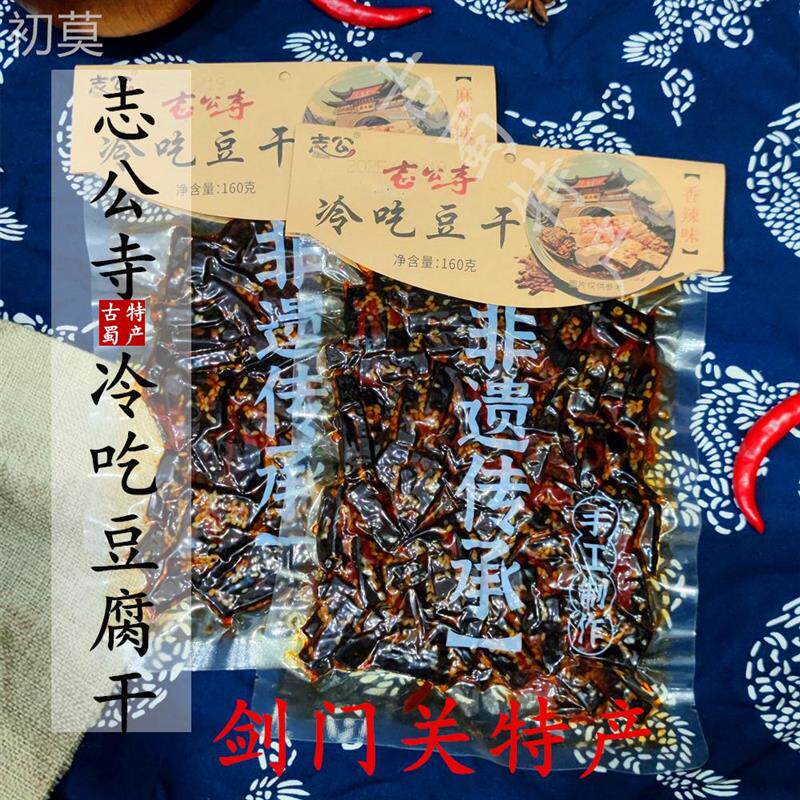 初莫
志公寺
古蜀
特产
冷吃豆腐干
志公
志公寺
冷吃豆干
净含量:160克
志公
志公寺
冷吃豆干
净含量:160克
【香辣味】
图片仅供参考
非遗传承】
非遗传承】
手工制作
剑门关特产